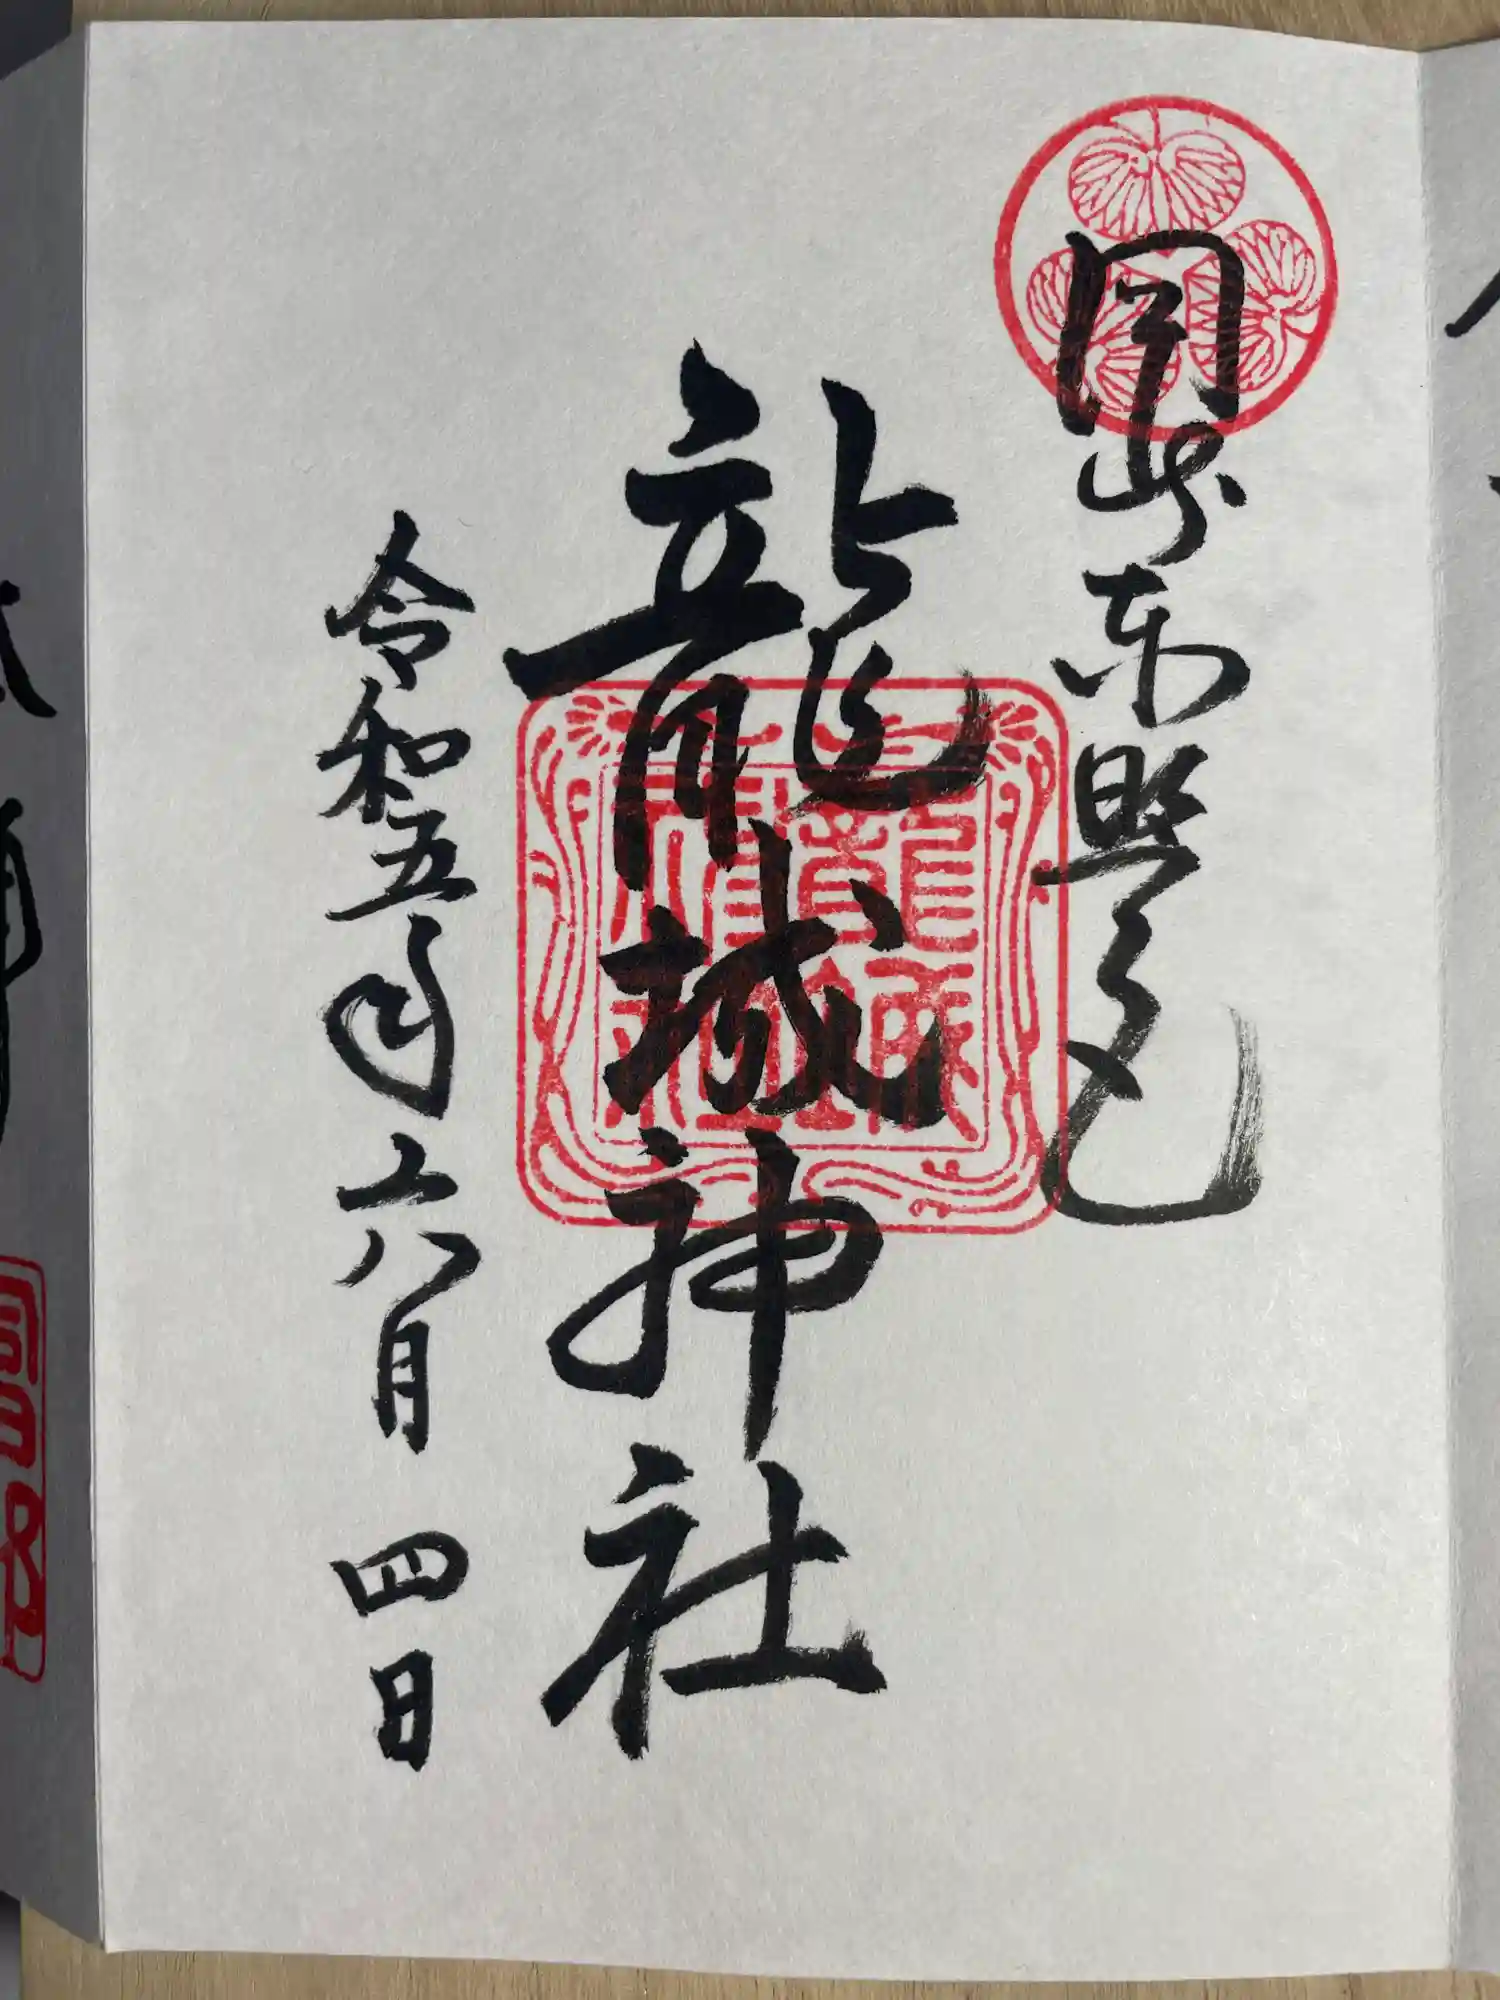 岡崎東照宮
龍城神社
令和五年六月四日
龍城神社